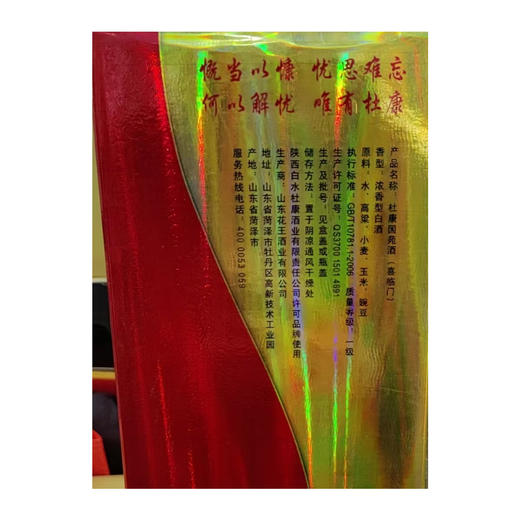 慨当以慷 忧思难忘
何以解忧 唯有杜康
产品名称：杜康国苑酒（喜临门）
香型：浓香型白酒
原料：水、高粱、小麦、玉米、豌豆
执行标准：GB/T10781.1-2006 质量等级：一级
生产许可证号：QS3700 1501 4891
生产及批号：见盒盖或瓶盖
储存方法：置于阴凉通风干燥处
陕西白水杜康酒业有限责任公司许可品牌使用
生产商：山东花王酒业有限公司
地址：山东省菏泽市牡丹区高新技术工业园
产地：山东省菏泽市
服务热线电话：400 0053 659